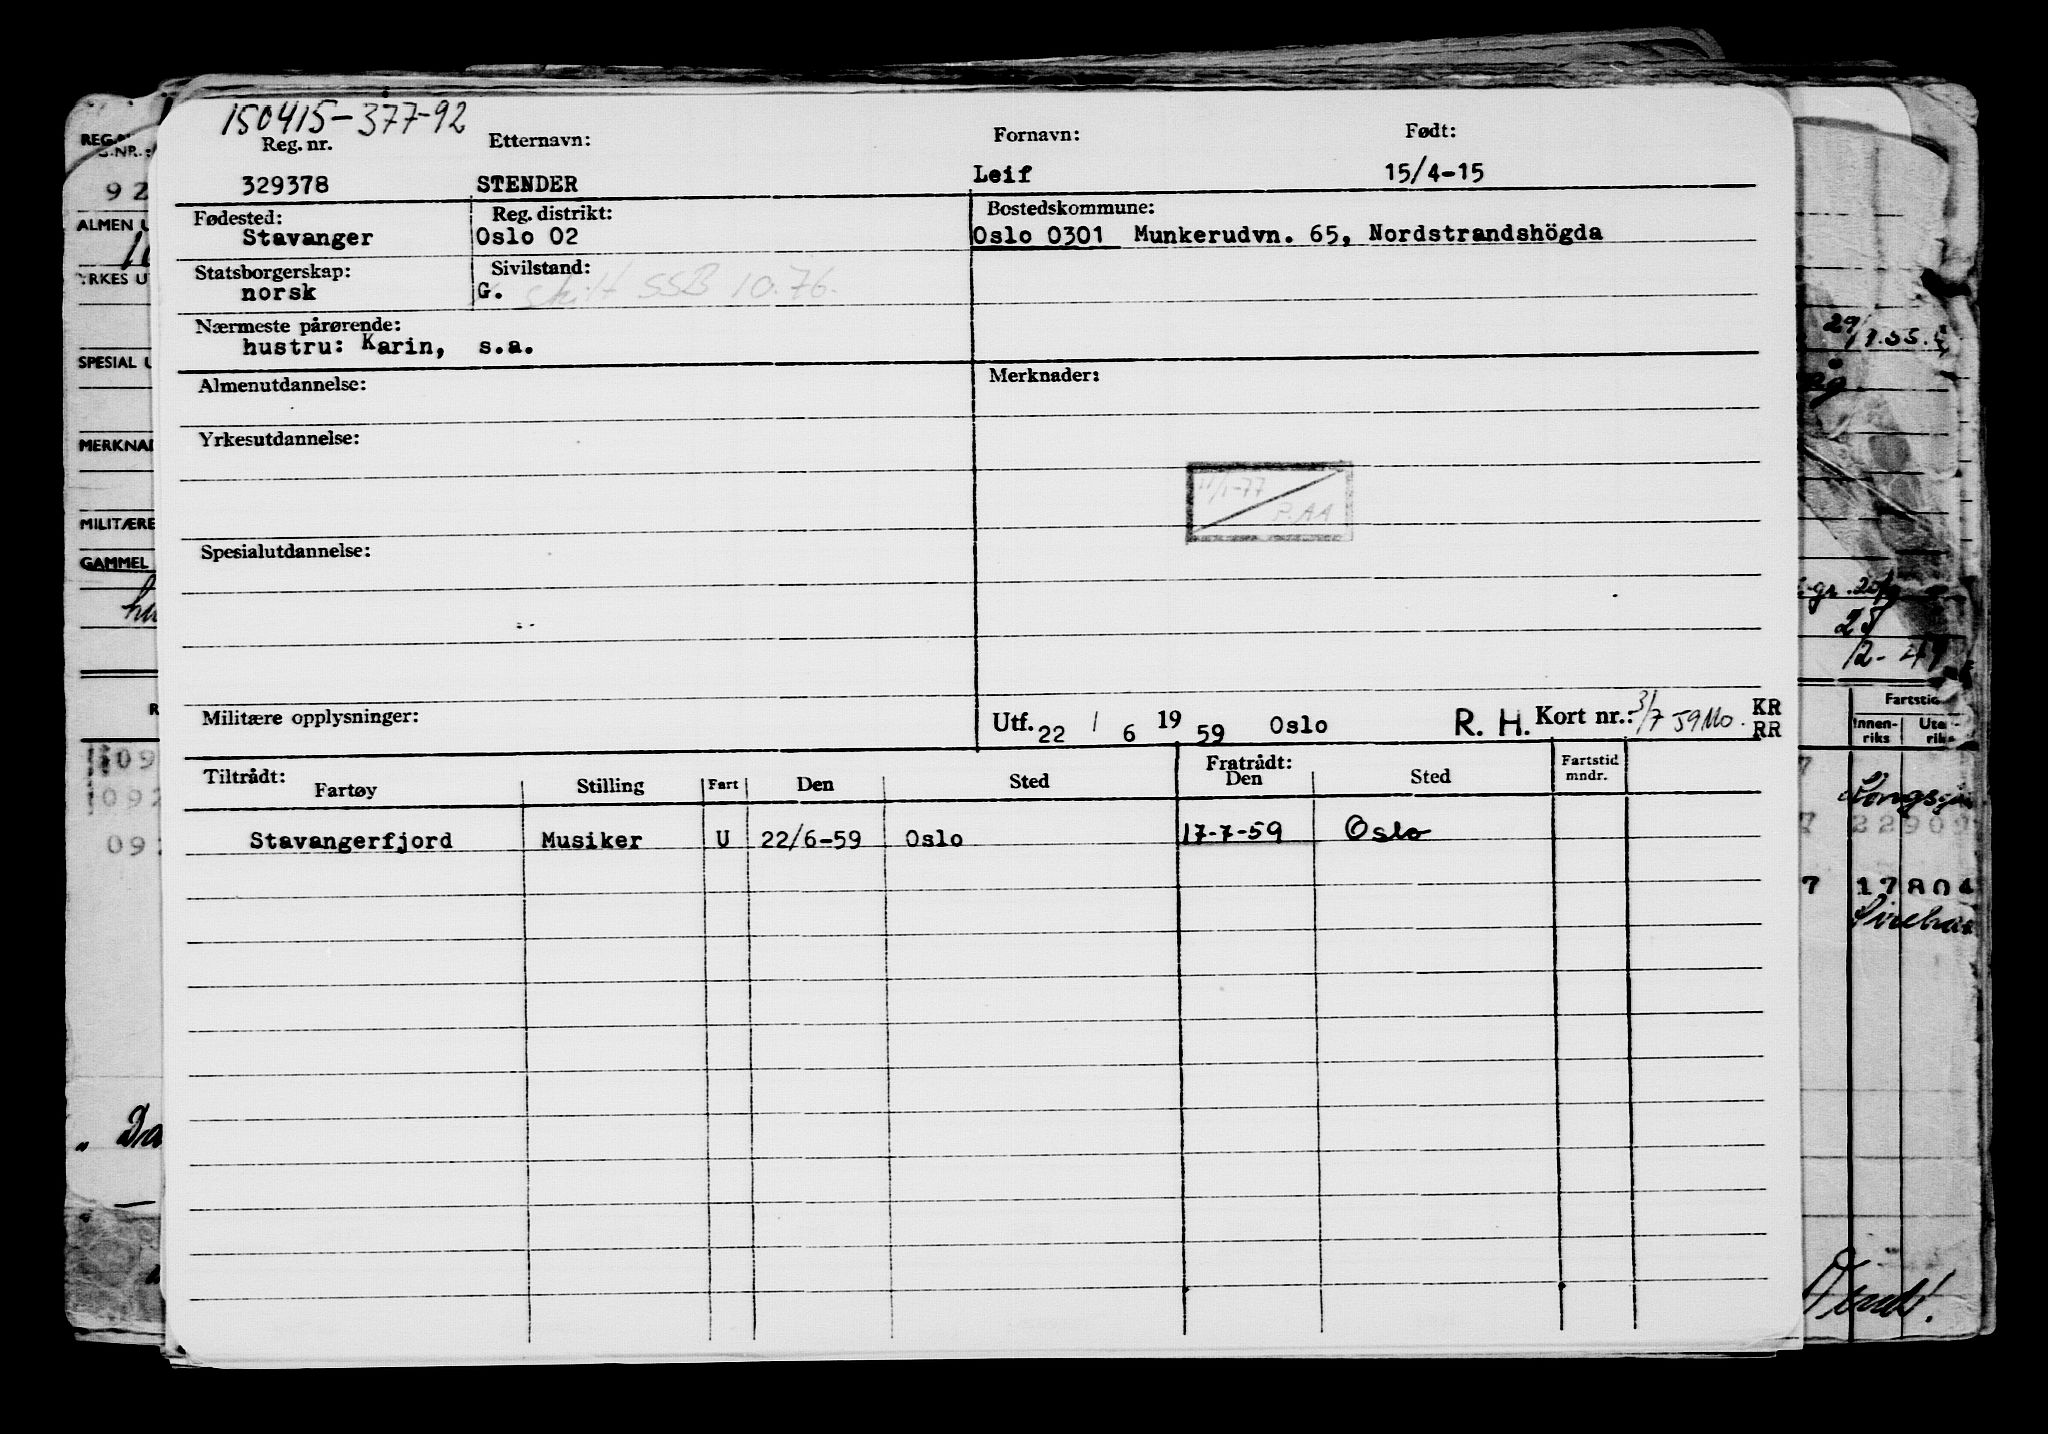 150415-377-92
Reg. nr. Etternavn: Fornavn: Født:
329378 STENDER Leif 15/4-15
Fødested: Reg. distrikt: Bostedskommune:
Stavanger Oslo 02 Oslo 0301 Munkerudvn. 65, Nordstrandshögda
Statsborgerskap: Sivilstand:
norsk G. skilt SSB 10.76.
Nærmeste pårørende:
hustru: Karin, s.a.
Almenutdannelse: Merknader:
Yrkesutdannelse:
11/1-77
P.AA
Spesialutdannelse:
Militære opplysninger: Utf. 22 / 6 19 59 Oslo R. H. Kort nr.: 3/7 59 Mo. KR
RR
Tiltrådt: Fratrådt:
Fartøy Stilling Fart Den Sted Den Sted Fartstid mndr.
Stavangerfjord Musiker U 22/6-59 Oslo 17-7-59 Oslo
ALMEN U
SPESIAL U
MERKNAD
MILITÆRE
GAMMEL
29/1.55.
12-47
Fartstid
Innen-
riks
Ute
riks
22909
7 17804